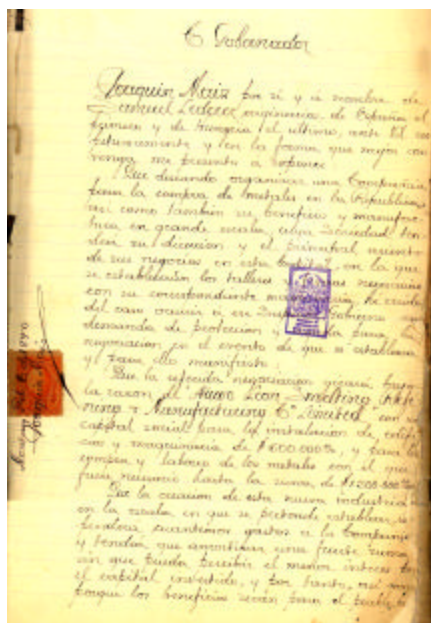 C. Gobernador
Joaquin Maiz por sí y á nombre de
Samuel Lederer, originario de España el
primero y de Hungria el último, ante Vd. res
petuosamente y en la forma que mejor con
venga me presento a exponer
Que deseando organizar una Compañia
para la compra de metales en la Republica
así como tambien su beneficio y manufac
tura en grande escala, cuya Sociedad ten
drá su direccion y el principal asiento
de sus negocios en esta Capital, en la que
se establecerán los talleres y
con su correspondiente maquinaria, he creido
del caso ocurrir á ese Gobierno en
demanda de proteccion para la
negociacion en el evento de que se establezca
y para ello manifiesto:
Que la referida negociacion girará bajo
la razon de "Nuevo Leon Smelting, Refi-
ning & Manufacturing Cº Limited" con un
capital social para la instalacion de edifi
cios y maquinaria de $600.000.00, y para la
compra y laboreo de los metales con el que
fuere necesario hasta la suma de
Que la creacion de esta nueva industria
en la escala en que se pretende establecer,
gastos a la Compañia
y tendrá que amortizar una fuerte suma
sin que pueda percibir el menor interes por
el capital invertido, y por tanto, así como
porque los beneficios serán para el pueblo